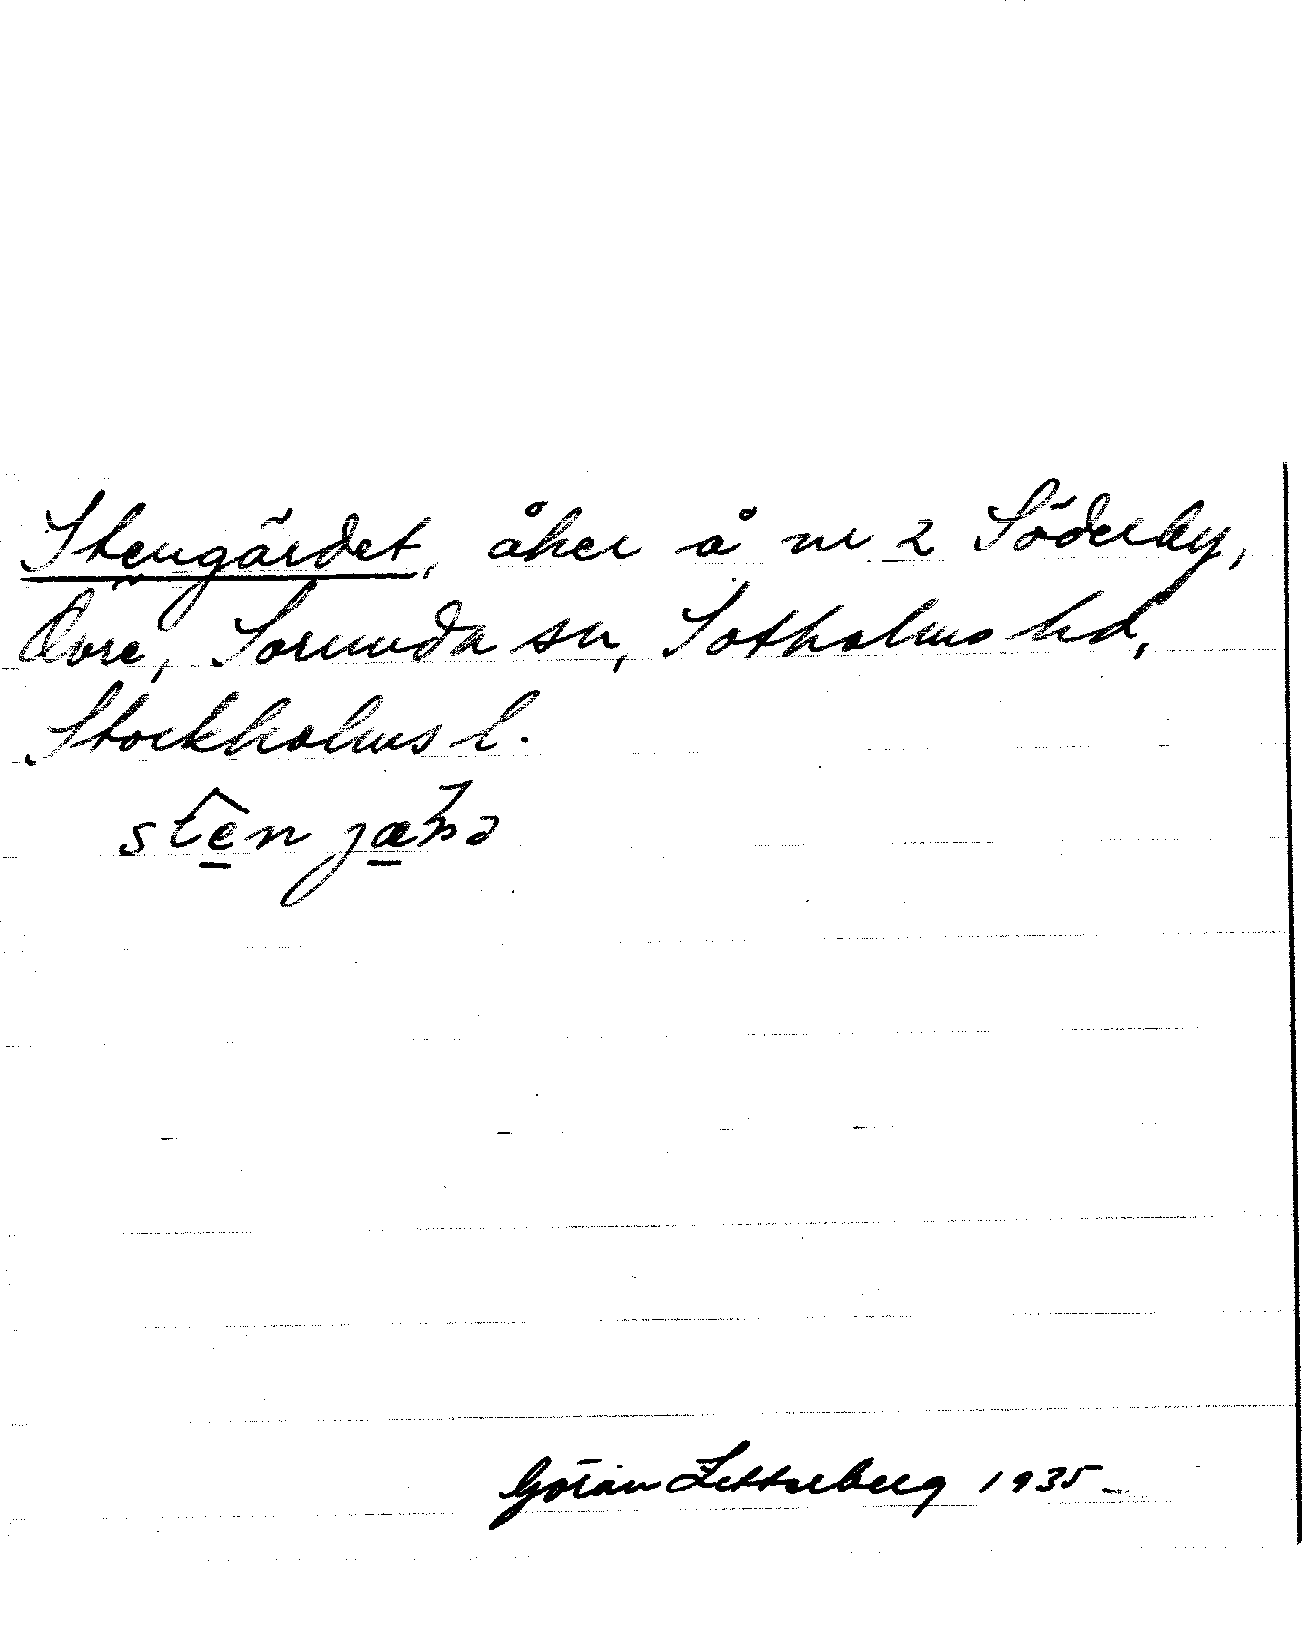 Stengärdet, åker å nr 2 Söderby,
Övre, Sorunda sn, Sotholms hd,
Stockholms l.
Göran Zetterberg 1935